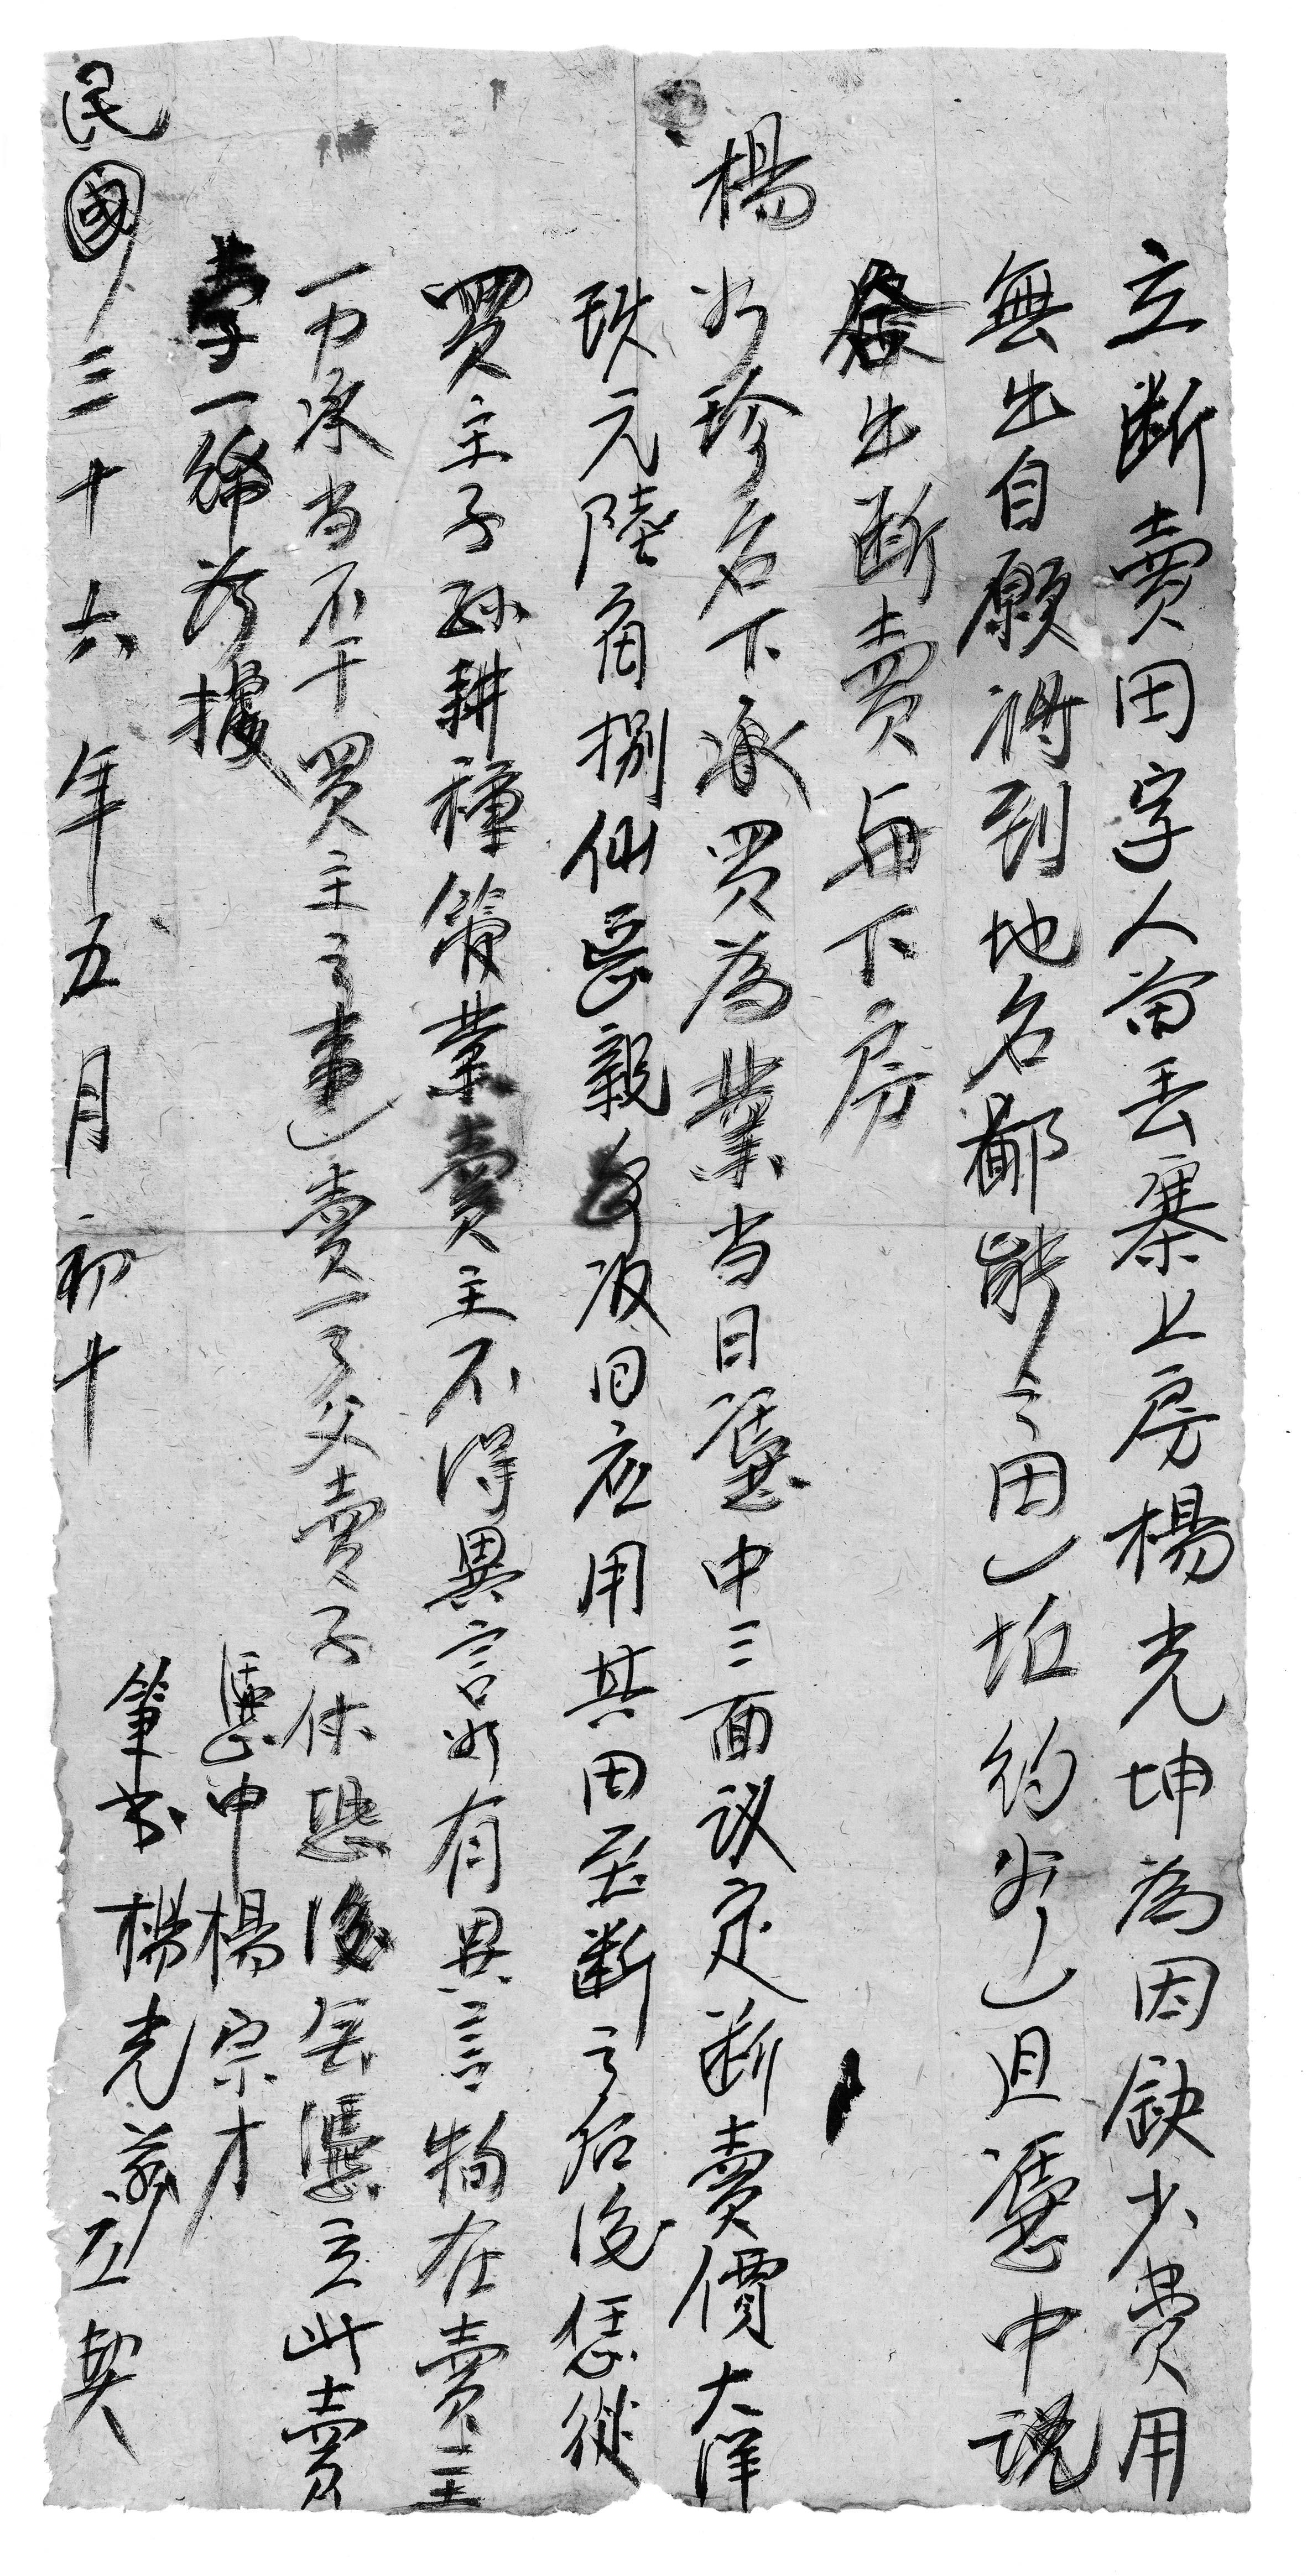 立断賣田字人苗丢寨上房楊光坤為因缺少費用
無出自願將到地名鄙能之田一坵約谷一且憑中説
合出断賣与下房
楊 珍名下承買為業当日憑中三面议定断賣價大洋
玖元陸角捌仙品親手收回应用其田至断之后後恁從
買主子孫耕種管業賣主不得異言如有異言物在賣主
一力承当不干買主之事一賣一了父賣子休恐後無憑立此賣
字一紙為據
憑中楊宗才
筆書楊光
民國三十六年五月初十 立契